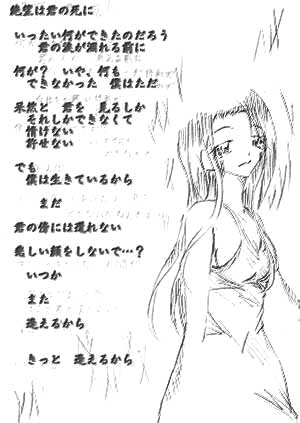 絶望は君の死に
いったい何ができたのだろう
君の涙が溺れる前に
何が？ いや、何も
できなかった 僕はただ
呆然と 君を 見るしか
それしかできなくて
情けない
許せない
でも
僕は生きているから
まだ
君の傍には還れない
悲しい顔をしないで…？
いつか
また
逢えるから
きっと 逢えるから